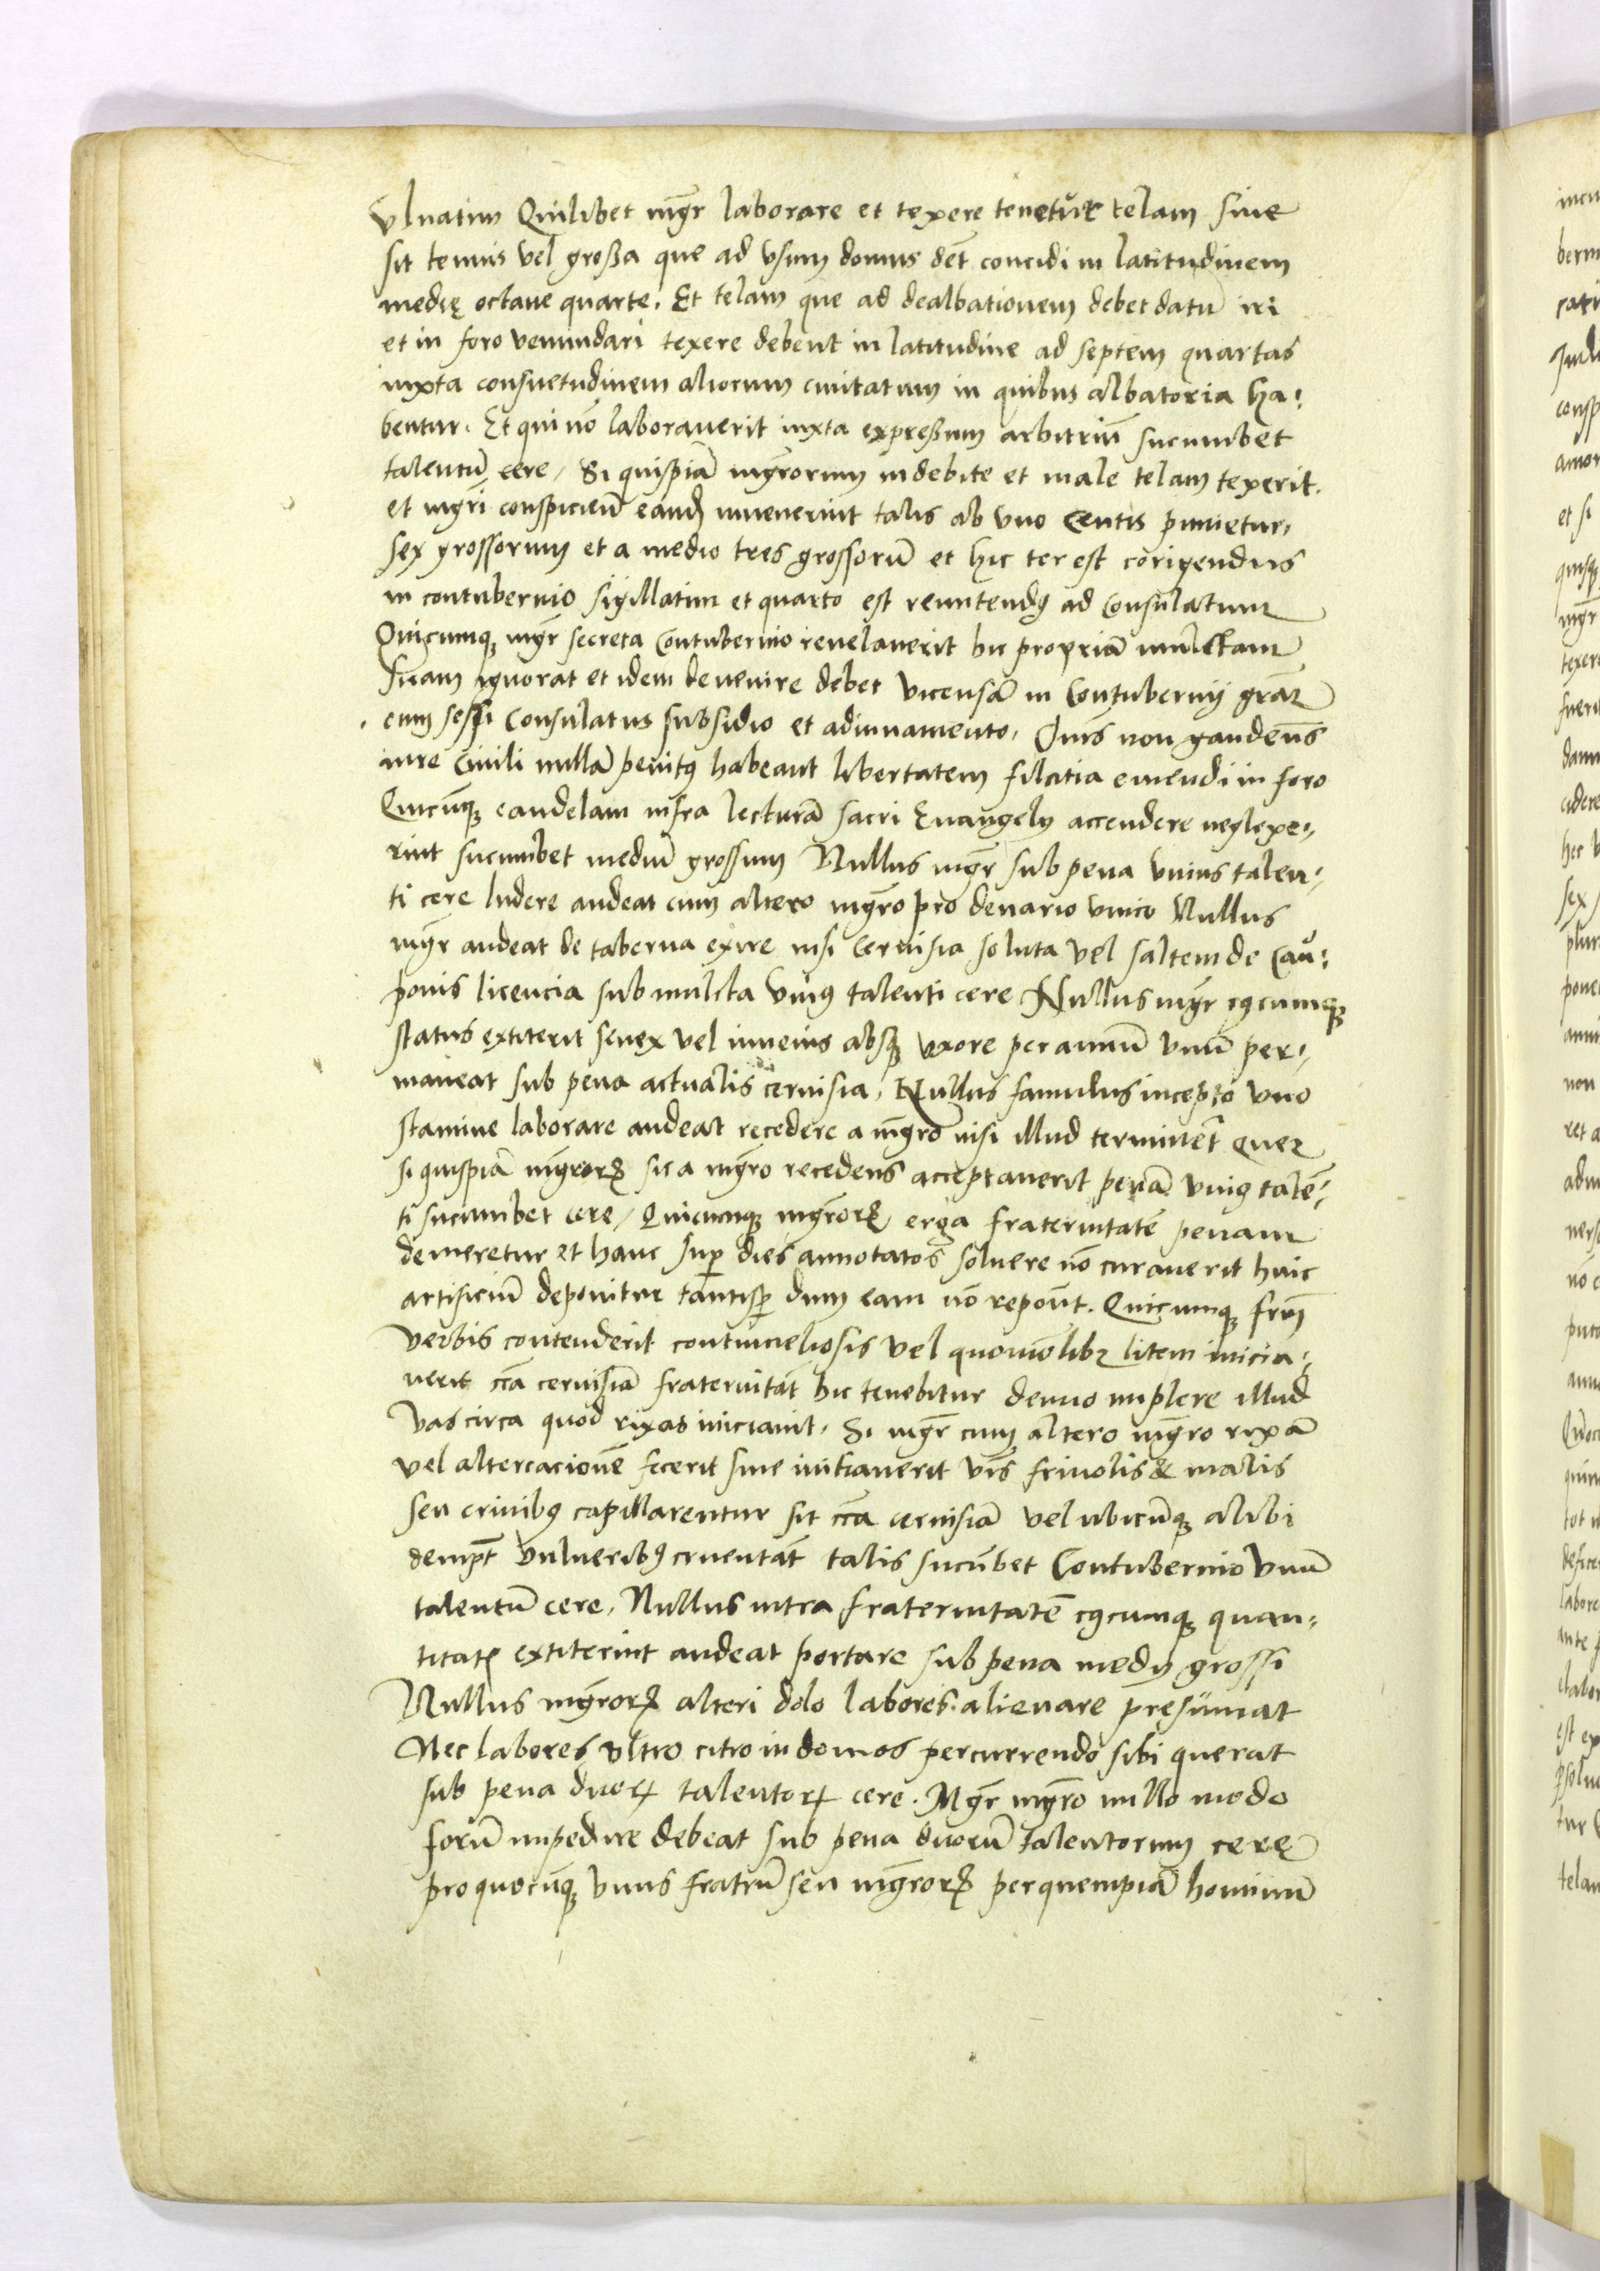 Vlnatim Quilibet mḡr laborare et texere tenetur telam siue
sit tenuis vel großa que ad vsum domus dēt concidi in latitudinem
medię octaue quarte. Et telam que ad dealbationem debet datū iri
et in foro venundari texere debent in latitudine ad septem quartas
iuxta consuetudinem aliorum ciuitatum in quibus albatoria ha:
bentur. Et qui nō laborauerit iuxta expreßum arbitriū sucumbet
talentū cere, Si quispiā mḡrorum indebite et male telam texerit.
et mḡri conspicieū eandē inuenerint talis ab vno centis punietur,
sex grossorum et a medio tres grossorū et hic ter est corigendus
in contubernio sigillatim et quarto est remitendꝰ ad consulatum
Quicumqꝫ mḡr secreta Contubernio reuelauerit hic propriā mulctam
suam ignorat et idem deuenire debet vicensā in Contubernij grāꝫ
eum sessi Consulatus subsidio et adiuuamento, Quis non gaudens
iure Ciuili nullā penitꝰ habeant libertatem filcitia emendi in foro
Quicūqꝫ candelam infra lecturā sacri Euangelij accendere neglexe:
rint sucumbet mediū grossum Nullus mḡr sub pena vnius talen:
ti cere ludere audeat cum altero mḡro pro denario vnico Nullus
mḡr audeat de taberna exire nisi ceruisia soluta vel saltem de Cau:
ponis licencia sub mulcta vniꝰ talenti cere Nullus mḡr cꝰcumqꝫ
status extiterit senex vel iuuenis absqꝫ vxore per annū vnū per:
maneat sub pena actualis ceruisia, Nullus famulus incepto vno
stamine laborare audeat recedere a mḡro nisi illud terminet̄ queꝫ
si quispiā mḡrorꝝ sic a mḡro recedens acceptauerit penā vniꝰ talē:
ti sucumbet cere, Quicumqꝫ mḡrorꝝ erga fraternitatē penam
demeretur et hanc suꝑ dies annotatos soluere nō curauerit huic
artificiū deponitur tantisꝑ dum eam nō repont̄. Quicumqꝫ frm̄
verbis contenderit contumeliosis vel quouismōlibꝫ litem inicia:
uerit cc̄a ceruisiā fraternitat̄ hic tenebitur denuo implere illud
vas circa quod rixas iniciauit. Si mḡr cum altero mḡro rixā
vel altercacionē fecerit siue initiauerit vīs friuolis & malis
seu crinibꝰ capillarentur sit cc̄a ceruisiā vel ubicūqꝫ alibi
dempt̄ vulneribꝰ cruentat̄ talis sucūbet Contubernio vnū
talentū cere, Nullus intra fraternitatē cꝰcumqꝫ quan:
titatꝭ extiterint audeat portare sub pena medij grossi
Nullus mḡrorꝝ alteri dolo labores alienare pręsumat
Nec labores vltro citro in domos percurrendo sibi querat
sub pena duorꝝ talentorꝝ cere. Mḡr mḡro nullo modo
forū impedire debeat sub pena duorū talentorum cerę
pro quocūqꝫ vnus fratrū seu mḡrorꝝ per quempiā hominū